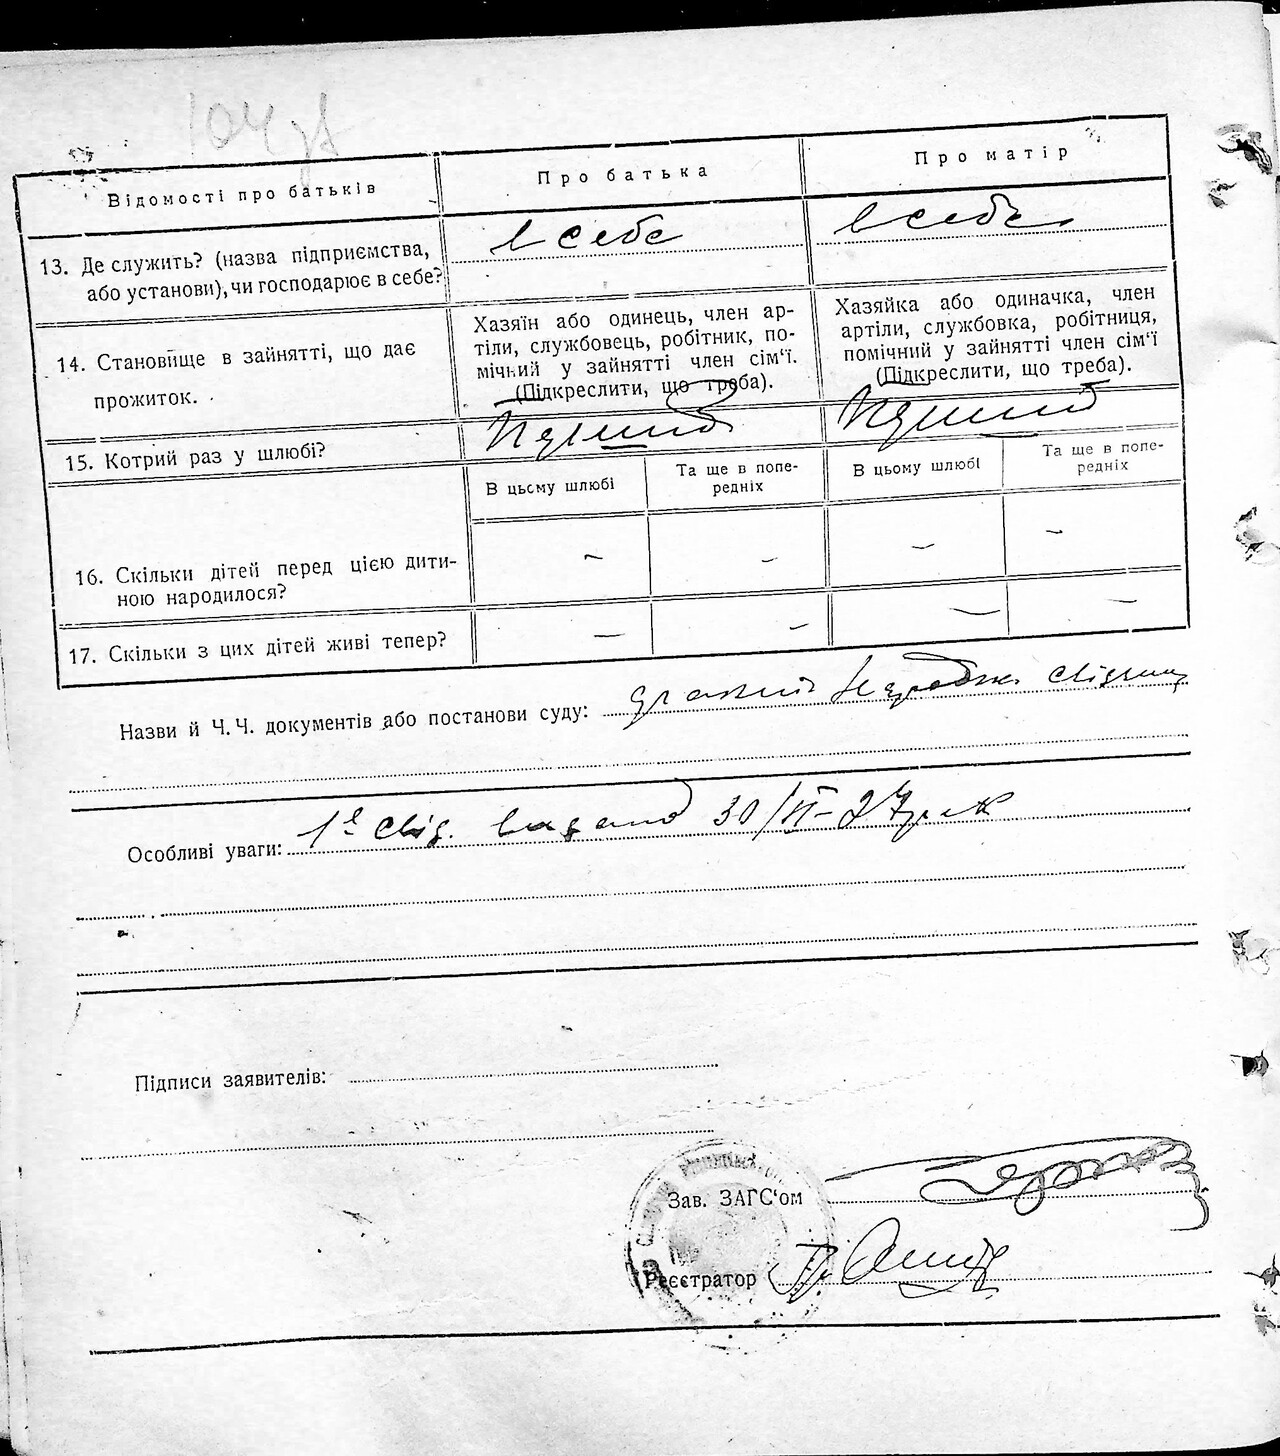 104
Відомості про батьків
Про батька
Про матір
13. Де служить? (назва підприємства,
або установи), чи господарює в себе?
в себе
в себе
14. Становище в зайнятті, що дає
прожиток.
Хазяїн або одинець, член ар-
тіли, службовець, робітник, по-
мічний у зайнятті член сім‘ї.
(Підкреслити, що треба).
Хазяйка або одиначка, член
артіли, службовка, робітниця,
помічний у зайнятті член сім‘ї
(Підкреслити, що треба).
15. Котрий раз у шлюбі?
В цьому шлюбі
Та ще в попе-
редніх
В цьому шлюбі
Та ще в попе-
редніх
16. Скільки дітей перед цією дити-
ною народилося?
– – – –
17. Скільки з цих дітей живі тепер?
– – – –
Назви й Ч. Ч. документів або постанови суду:
Особливі уваги: 30/VI-27
Підписи заявителів:
Зав. ЗАГС‘ом
Реєстратор